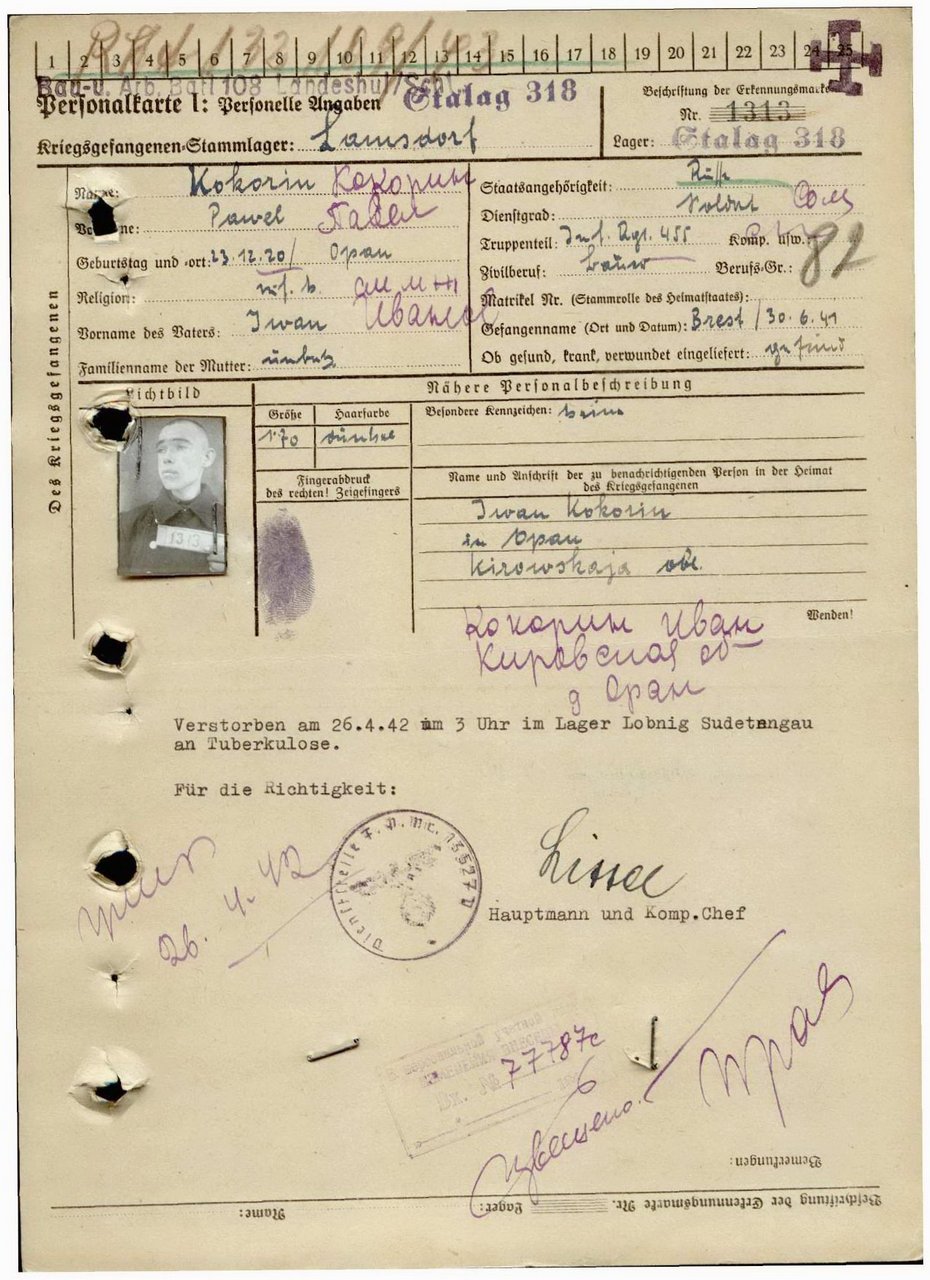 1 2 3 4 5 6 7 8 9 10 11 12 13 14 15 16 17 18 19 20 21 22 23 24 25
Bau-u. Arb. Batl 108 Landeshut/Schl.
Personalkarte I: Personelle Angaben Stalag 318
Beschriftung der Erkennungsmarke
Nr. 1313
Kriegsgefangenen-Stammlager: Lamsdorf
Lager: Stalag 318
Des Kriegsgefangenen
Name: Kokorin Кокорин
Vorname: Pawel Павел
Geburtstag und -ort: 23.12.20/ Opan
Religion:
Vorname des Vaters: Iwan Иван
Familienname der Mutter: unbek
Staatsangehörigkeit: Russe
Dienstgrad: Soldat Сол
Truppenteil: Inf. Rgt. 455 Komp. usw.:
Zivilberuf: Bauer Berufs-Gr.: 82
Matrikel Nr. (Stammrolle des Heimatstaates):
Gefangennahme (Ort und Datum): Brest / 30.6.41
Ob gesund, krank, verwundet eingeliefert: gesund
Lichtbild
Nähere Personalbeschreibung
Größe Haarfarbe
1.70 dunkel
Besondere Kennzeichen: keine
1313
Fingerabdruck
des rechten! Zeigefingers
Name und Anschrift der zu benachrichtigenden Person in der Heimat
des Kriegsgefangenen
Iwan Kokorin
in Opan
Kirowskaja obl.
Wenden!
Кокорин Иван
Кировская об
д Оран
Verstorben am 26.4.42 um 3 Uhr im Lager Lobnig Sudetengau
an Tuberkulose.
Für die Richtigkeit:
Dienststelle F.P.Nr. 13527 D
26. 4. 42
Hauptmann und Komp.Chef
Вх. № 77787с
Bemerkungen:
Beschriftung der Erkennungsmarke Nr. Lager:
Name: